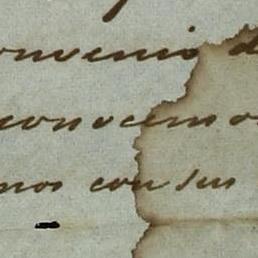 onvenio d
conocemos
mos con sus